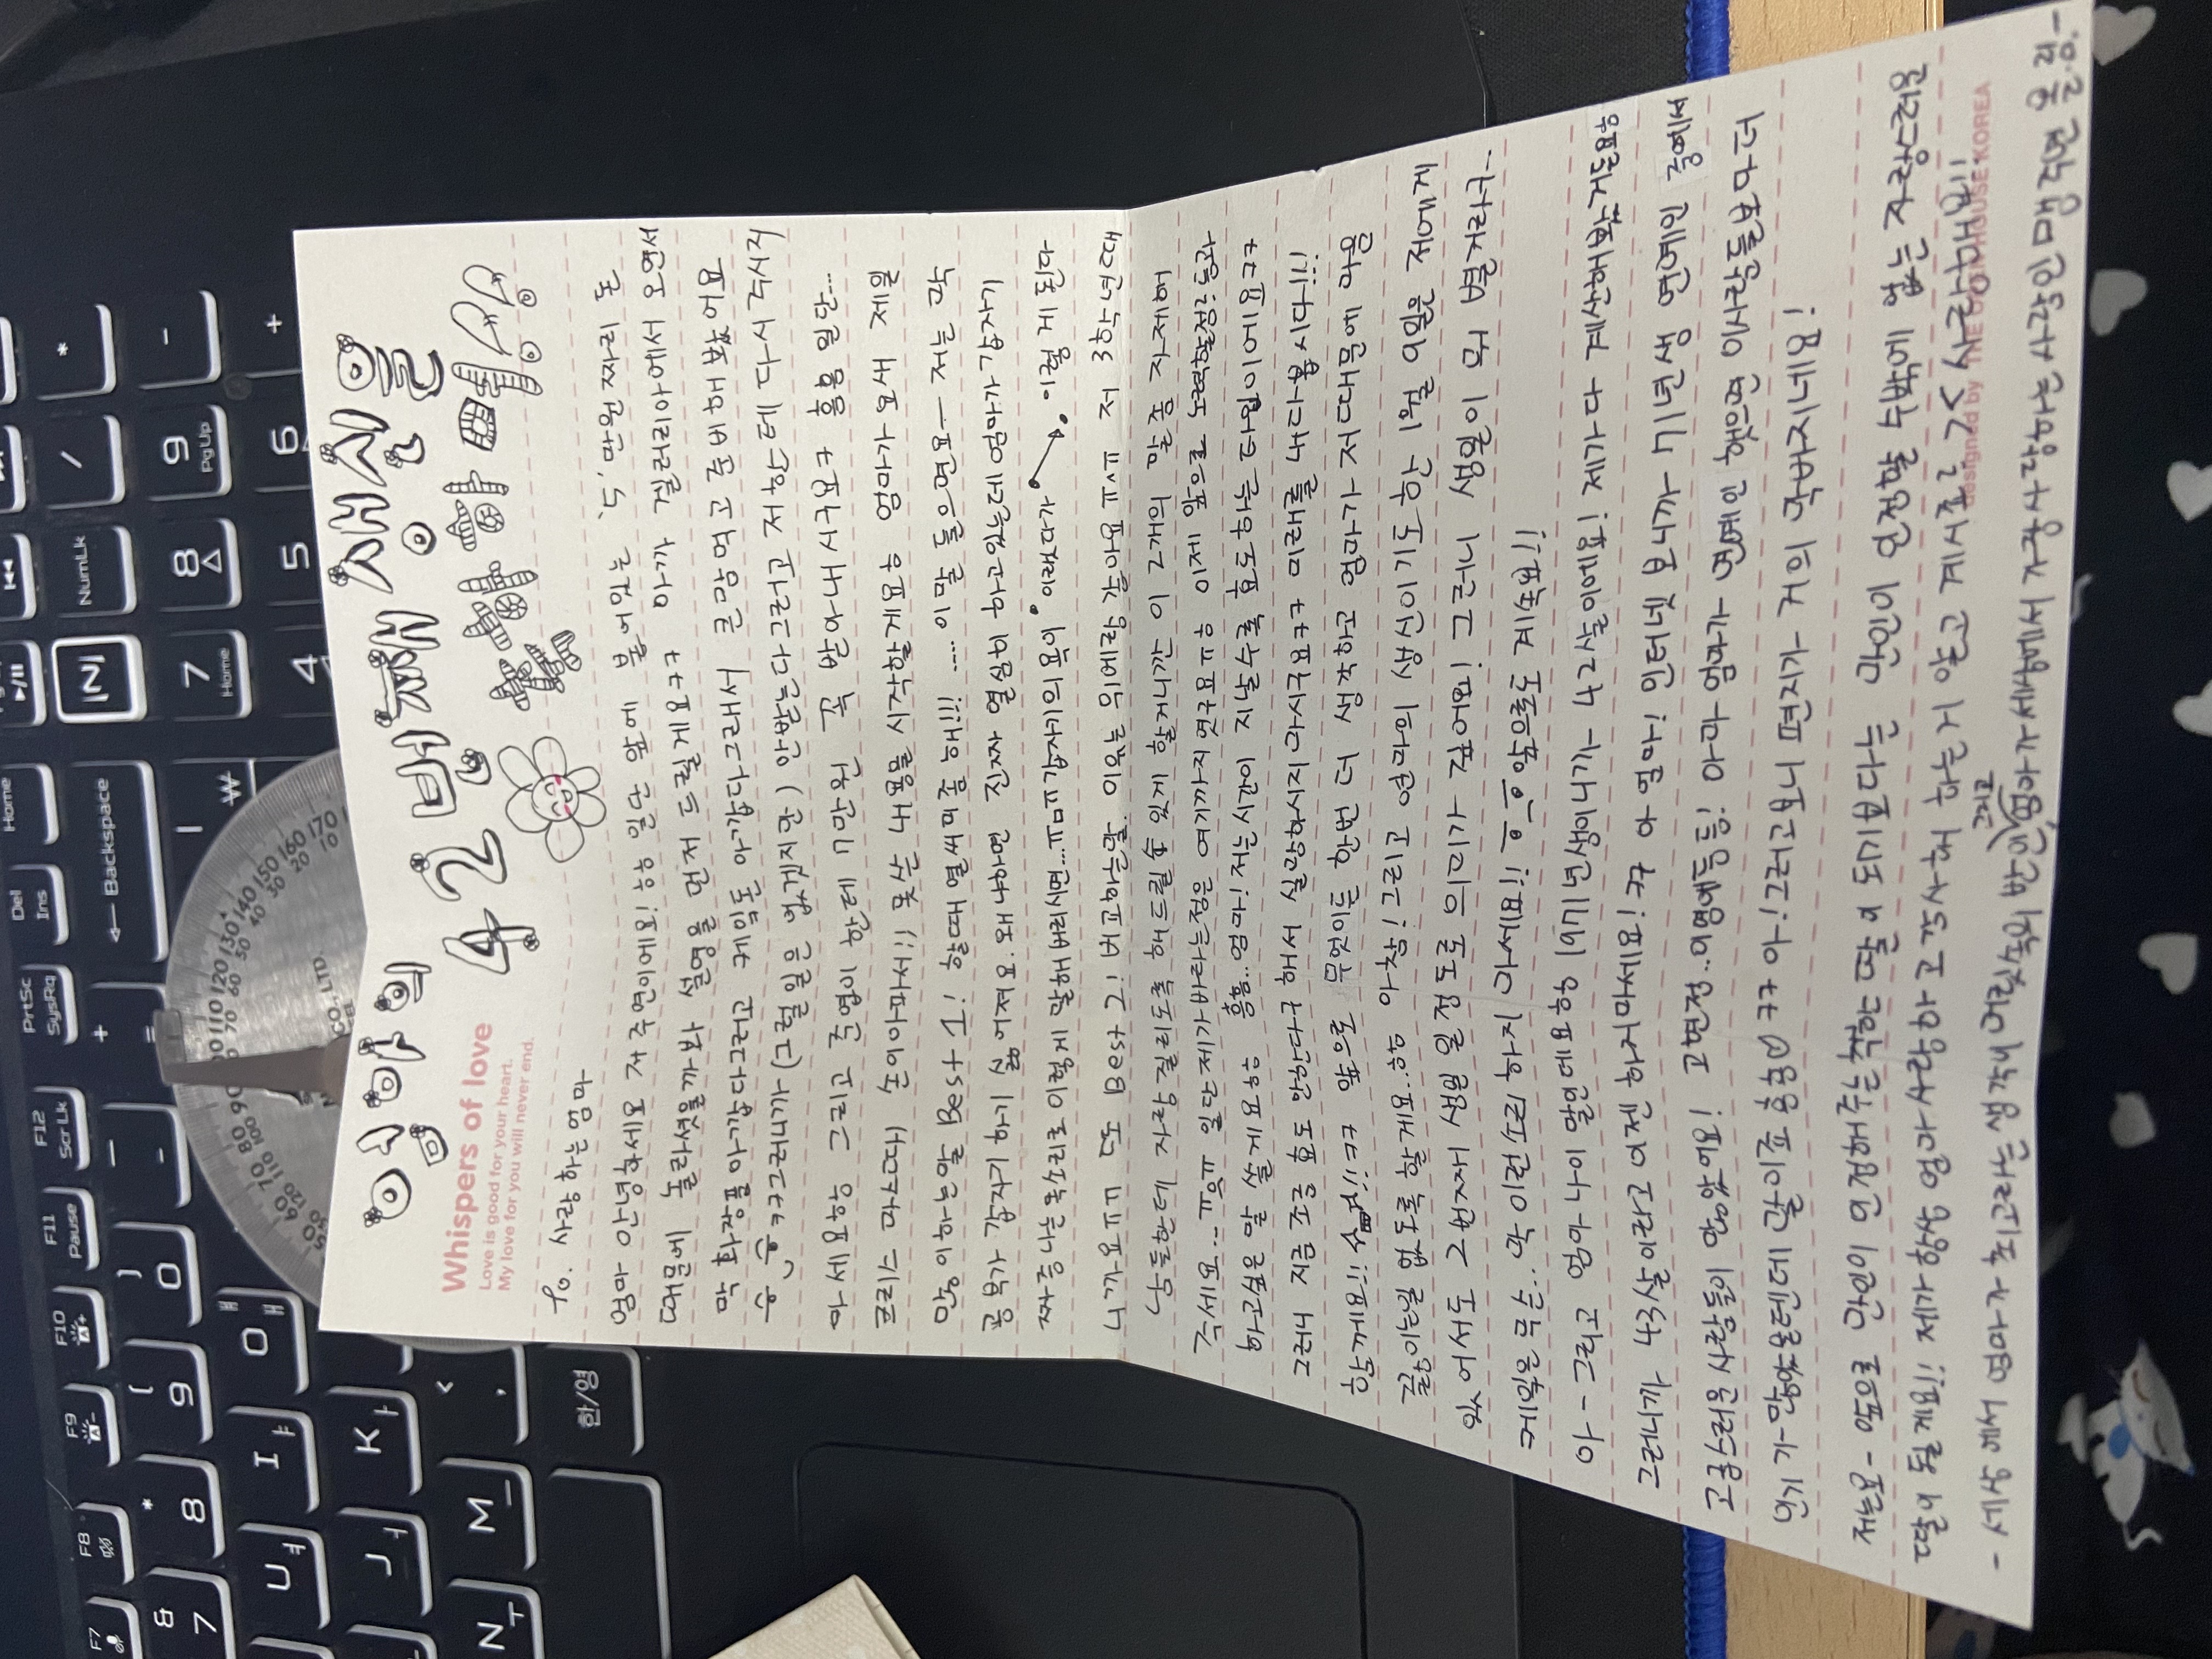 F7
F8
F9
F10
F11
Pause
F12
Scr Lk
PrtSc
SysRq
Del
Ins
Home
NumLk
/
*
&
7
*
8
(
9
)
0
_
-
+
=
← Backspace
7
Home
8
9
PgUp
-
U ㅕ
I ㅑ
O ㅒ ㅐ
| ₩
4
5
6
+
J ㅓ
K ㅏ
N ㅜ
M ㅡ
<
,
한/영
50 60 70 80 90 110 120 130 140 150 160 170
120 110 100 70 60 50 40 30 20 10
CO., LTD.
엄마의
42번째 생신을
축하하며!!
Whispers of love
Love is good for your heart.
My love for you will never end.
To. 사랑하는 엄마
엄마 안녕하세요 저 주연이에요! ㅎㅎ 일단 앞에 붙어있는 '5'만원 짜리 돈
때문에 놀라셧을까봐 설명을 먼저 드릴게요ㅋㅋ 아까 겔러리아에서 오면서
막 화장품 아깝다그러고 케잌돈 아깝다그래서 큰맘먹고 준비해봤어요
ㅋㅋ그러니까 (그럴일은 없겠지만) 안받는다그러고 저한테 다시 주시지
마세요ㅎㅎ 그리고 준엽이 한테 7만원 꼭 받아내시구요ㅋ 흠흠 일단...
크리스마스때 손이아파서!! 못쓴 내용을 시작할게요ㅎ 엄마가 요새 제일
많이하는말 Best 1! 할때 열씨미좀 해!!! .... 이말 들으면요ㅡ 저는 막
공부가 갑자기 하기 싫어져요. 왜냐하면 진짜 열심히 하고있는데 엄마가 갑자기
짜증나는 목소리로 이렇게 말해버리시면...ㅠㅁㅠ 갑자기 의욕이 이랬다가 이렇게 된다
니까요ㅠㅠ 또 Best 2! 비교하는말. 이유는 위에랑 같아요ㅠㅅㅠ 저 3학년때
남들한테 자랑 질리도록 해드릴 수 있게 할거니깐 이 2개의 말좀 자제해
주세요...ㅠㅡㅠ 일단 제가바라는점은 여기까지였구요ㅠㅎ 이제 앞으로 노력할점? 등과
하고싶은 말 쓸게요ㅎㅎ 흠흠.. 엄마! 저는 시간이 지날수록 효도하는 타입이에요ㅋㅋ
그러니 지금 조금 효도 안한다구 해서 실망하시지 마시구요ㅋㅋ 미래를 내다봅시다!!!
할께요!! !!ㅋㅋ 앞으로 무엇이든 한번 더 생각하고 엄마가 저때문에 마음
끓이는일 없도록 할게요..ㅎㅎ 아참! 그리고 엄마의 생신이기도 한 1월 9일은 저에게
있어서도 2번째 생일 일정도로 의미가 깊어요! 그러니 생일이 뭐 별거라구..
케잌은 무슨.. 막 이런소리 하지 마세요!! 앞으로도 계속요!!
아-그리고 엄마 나이 말인데요ㅎㅎ 1971년생이니까 42살이에요! 제가 다 계산해봤거든요ㅎ
그러니까 43살이라고 이젠 하지마세요! ㅋㅋ 아 엄마! 인터넷 보니까 71년생 연예인 중에서
고급스러운 사람들이 많았어요! 고현정.. 이영애등등! 아마 엄마가 연예인 했으면 이사람들보다 더
인기가 많았을텐데 말이죠 흠흠♡ ㅋㅋ 아! 그러고보니 편지가 거의 막바지네요!
저는요- 앞으로 만인이 인정해주는 착한 딸이 되기보다는 만인이 인정할 수밖에 없는 자랑스러운
딸이 될게요!! 제가 항상 엄마 사랑하고 감사해 하는거 알고 계시죠? >< 사랑해요!!
designed by THE OPEN HOUSE KOREA
- 세상에서 엄마가 최고라는 생각이 머릿속의 반인, 그리고 엄마가 세상에서 가장 사랑하는 사람인 맹주연 올림. -